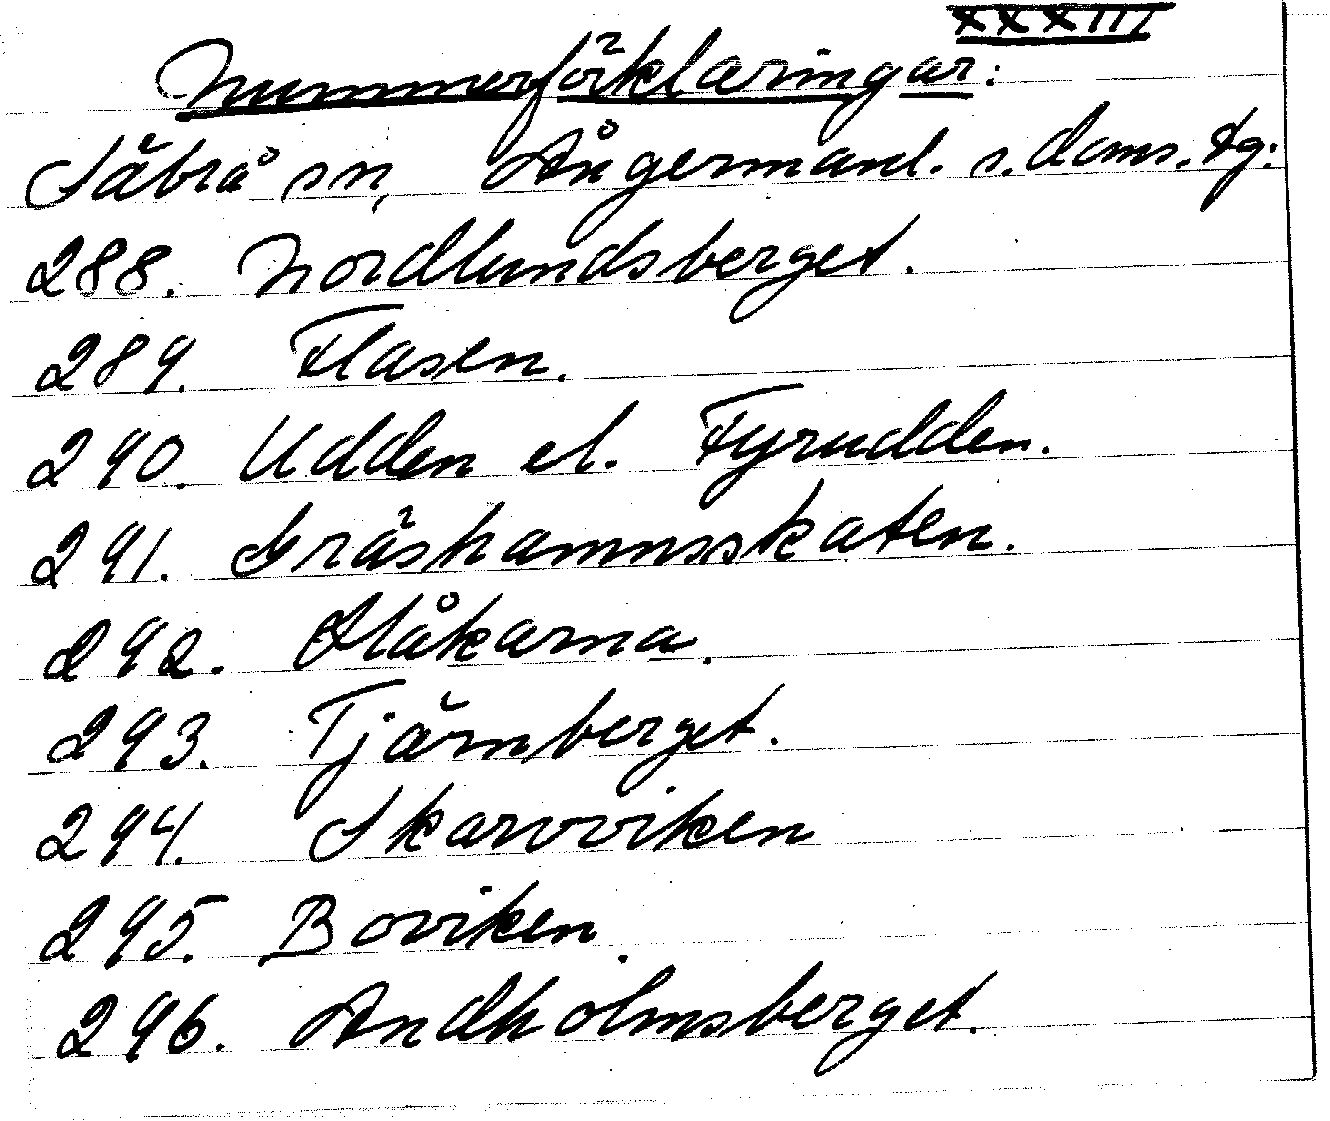 XXXIII
Nummerförklaringar:
Säbrå sn, Ångermanl. s. doms. tg:
288. Nordlundsberget.
289. Flasen.
290. Udden el. Fyrudden.
291. Gräshamnsskaten.
292. Flåkarna.
293. Tjärnberget.
294. Skarvviken
295. Boviken.
296. Andholmsberget.